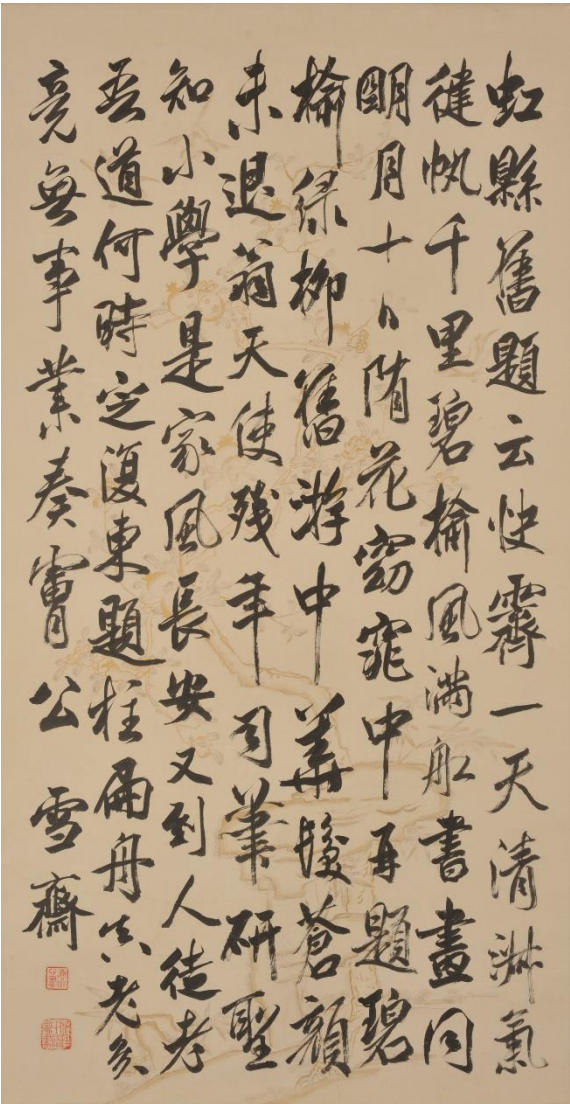 虹縣舊題云快霽一天清淑氣
健帆千里碧榆風滿舡書畫同
明月十日隋花窈窕中再題碧
榆綠柳舊游中華髮蒼顏
未退翁天使殘年司筆研聖
知小學是家風長安又到人徒老
吾道何時定復東題柱扁舟真老矣
竟無事業奏膚公 雪齋